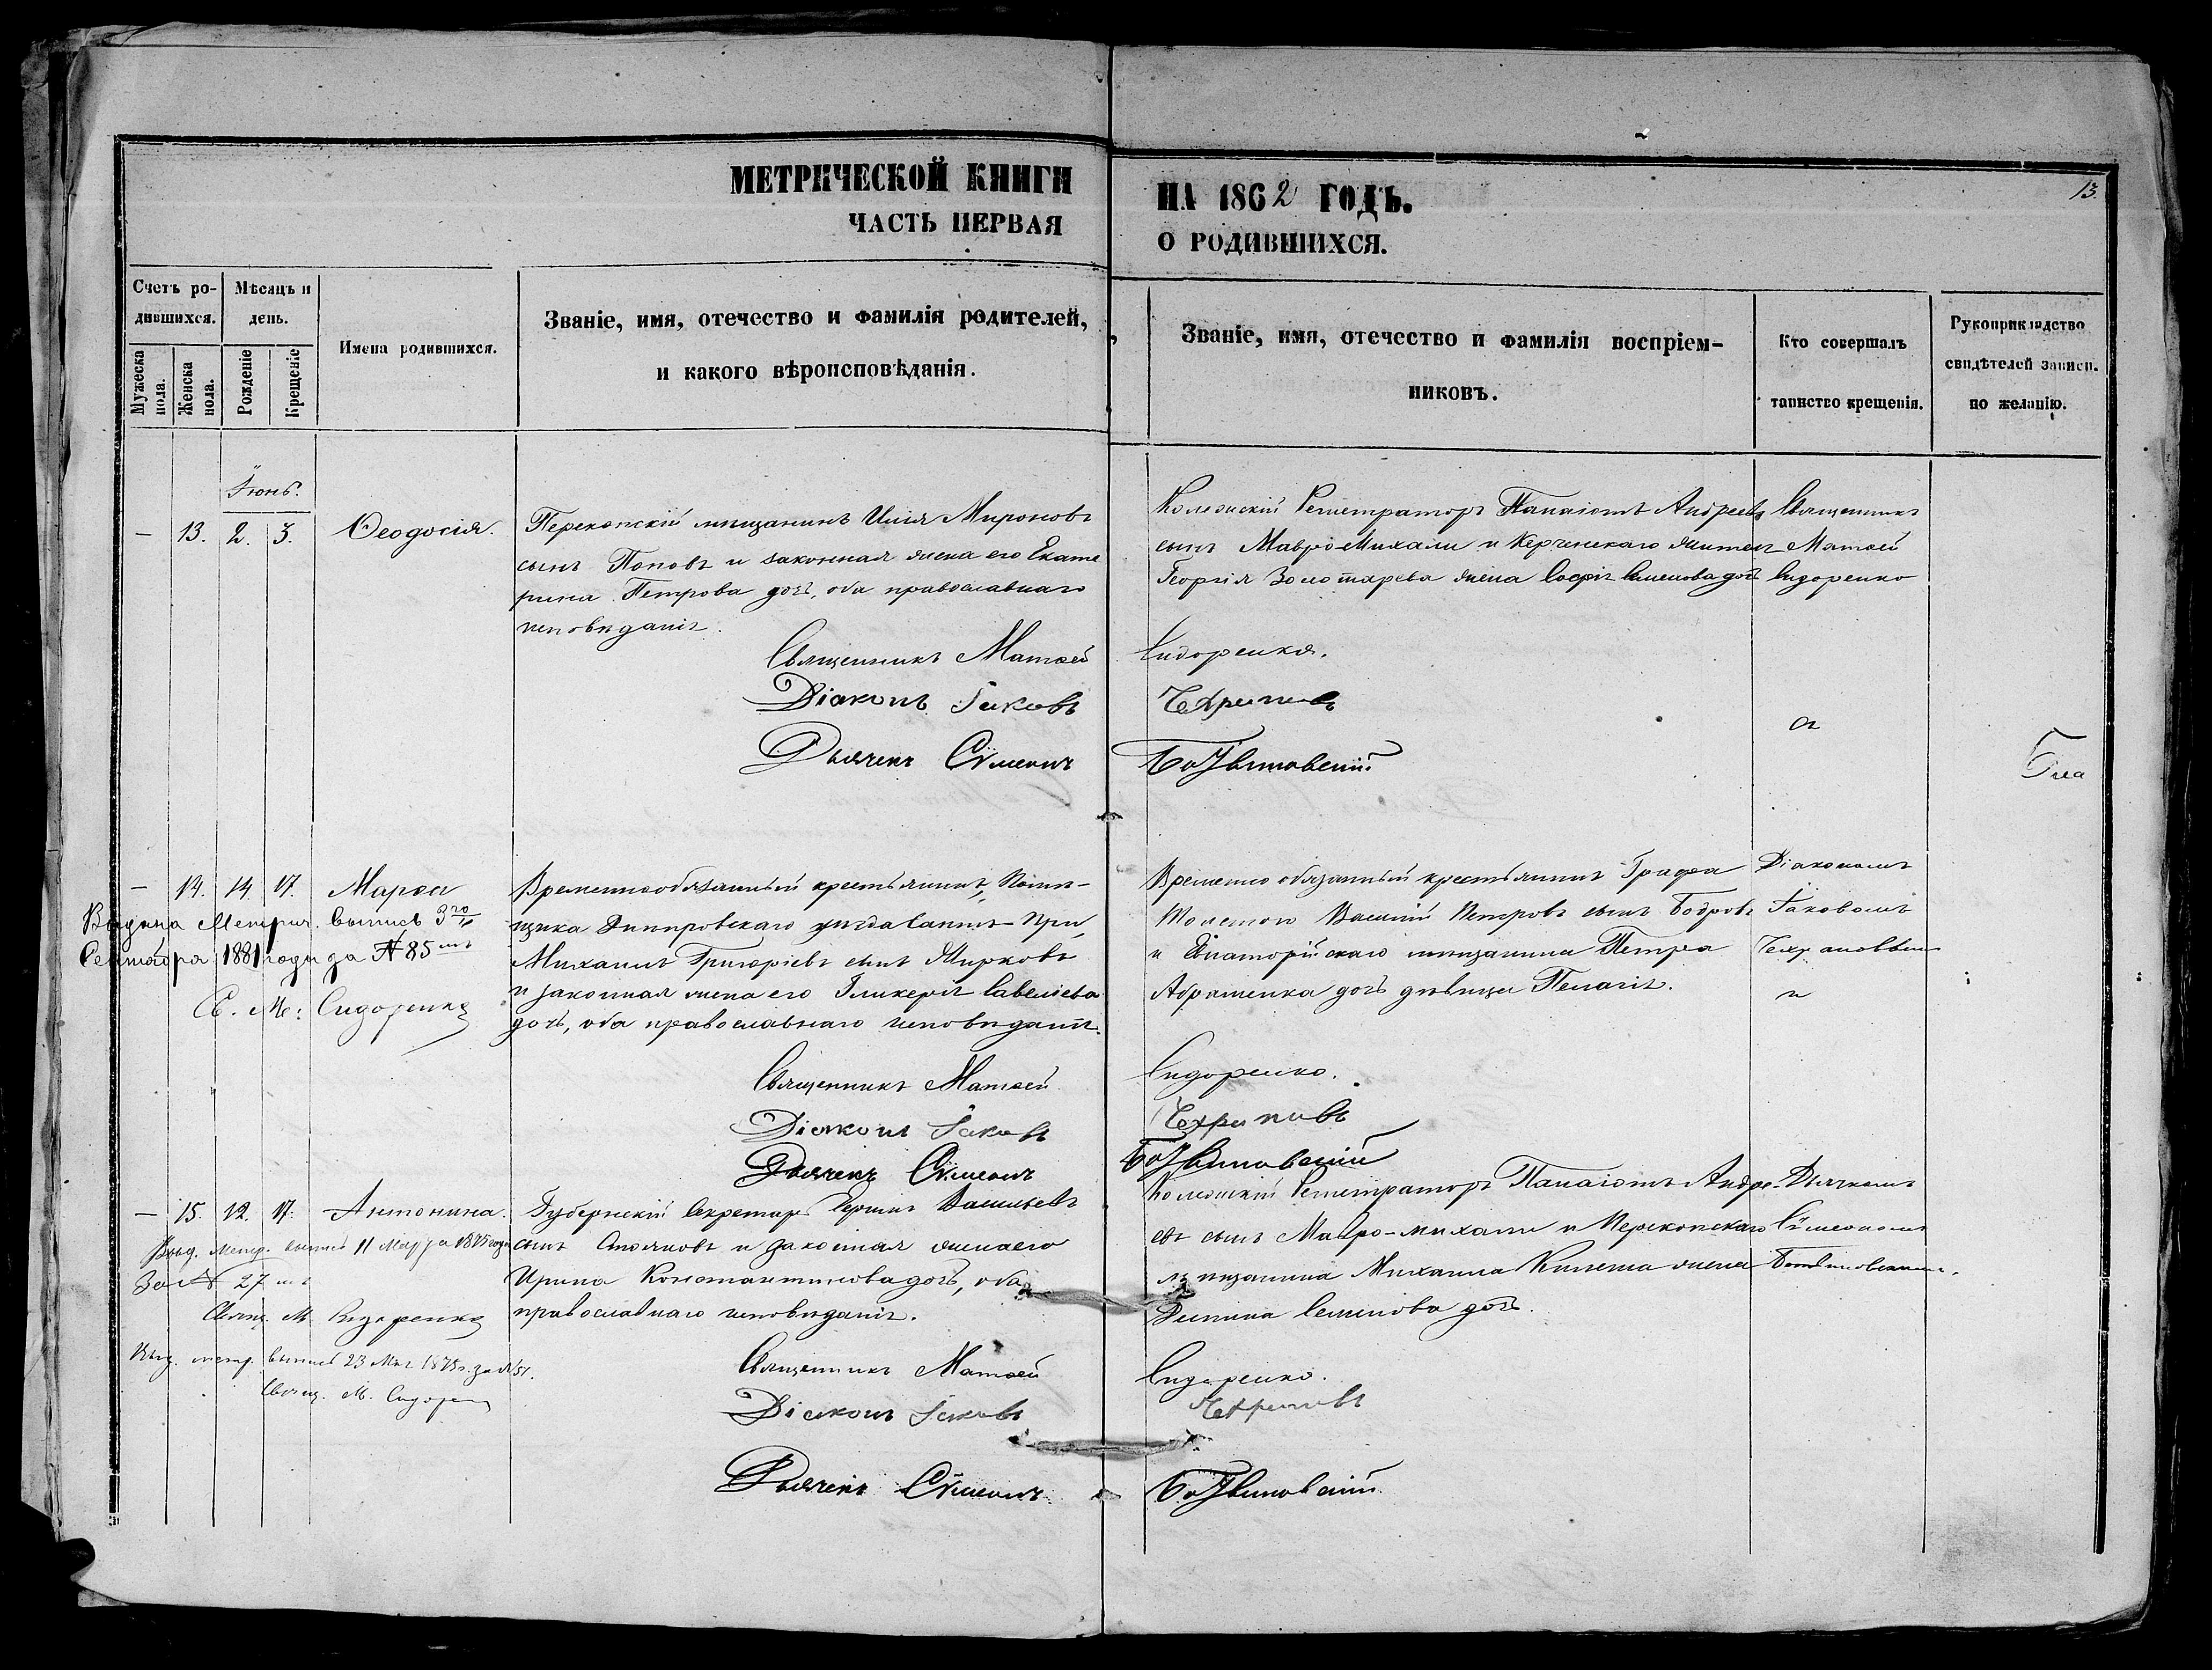 МЕТРИЧЕСКОЙ КНИГИ
ЧАСТЬ ПЕРВАЯ
НА 1862 ГОДЪ.
О РОДИВШИХСЯ.
13.
Счетъ ро-
дившихся.
Мужеска пола.
Женска пола.
Мѣсяцъ и
день.
Рожденіе
Крещеніе
Имена родившихся.
Званіе, имя, отечество и фамилія родителей,
и какого вѣроисповѣданія.
Званіе, имя, отечество и фамилія воспріем-
никовъ.
Кто совершалъ
таинство крещенія.
Рукоприкладство
свидѣтелей записи.
по желанію.
Іюнь.
— 13. 2. 3. Ѳеодосія.
Перекопскій мѣщанинъ Илія Мироновъ
сынъ Поповъ и законная жена его Екате
рина Петрова дочь, оба православнаго
исповѣданія.
Колежскій Регистраторъ Панаіотъ Андреевъ
сынъ Мавро-Михали и Керченскаго жителя
Георгія Золотарева жена Софія Семенова дочь
Священникъ
Матѳей
Сидоренко
Священникъ Матѳей Сидоренко.
Діаконъ Іаковъ Чехрановъ
Дьячекъ Сѵмеонъ Ботвиновскій
— 14. 14. 17. Марѳа
Выдана Метрич. выпись 3го
Сентября 1881 года за № 85мъ
С. М: Сидоренко
Временнообязанный крестьянинъ, Помѣ-
щика Днѣпровскаго уѣзда
Михаилъ Григорьевъ сынъ Жирковъ
и законная жена его Гликерія Савеліева
дочь, оба православнаго исповѣданія.
Временно обязанный крестьянинъ Графа
Толстого Василій Петровъ сынъ Бобровъ
и Евпаторійскаго мѣщанина Петра
Абраменка дочь дѣвица Пелагія.
Діакономъ
Іаковомъ
Чехрановымъ
Священникъ Матѳей Сидоренко.
Діаконъ Іаковъ Чехрановъ
Дьячекъ Сѵмеонъ Ботвиновскій
— 15. 12. 17. Антонина.
Выд. метр. выпись 11 Марта 1875 года
За № 27мъ
Свящ. М Сидоренко
Выд. метр. выпись 23 1875г. за № 51.
Свящ. М. Сидорен
Губернскій Секретарь Сергій Васильевъ
сынъ Стояновъ и законная жена его
Ирина Константинова дочь, оба
православнаго исповѣданія.
Колежскій Регистраторъ Панаіотъ Андре-
евъ сынъ Мавро-михали и Перекопскаго
мѣщанина Михаила жена
Семенова дочь.
Дьячкомъ
Сѵмеономъ
Ботвиновскимъ.
Священникъ Матѳей Сидоренко.
Діаконъ Іаковъ Чехрановъ
Дьячекъ Сѵмеонъ Ботвиновскій